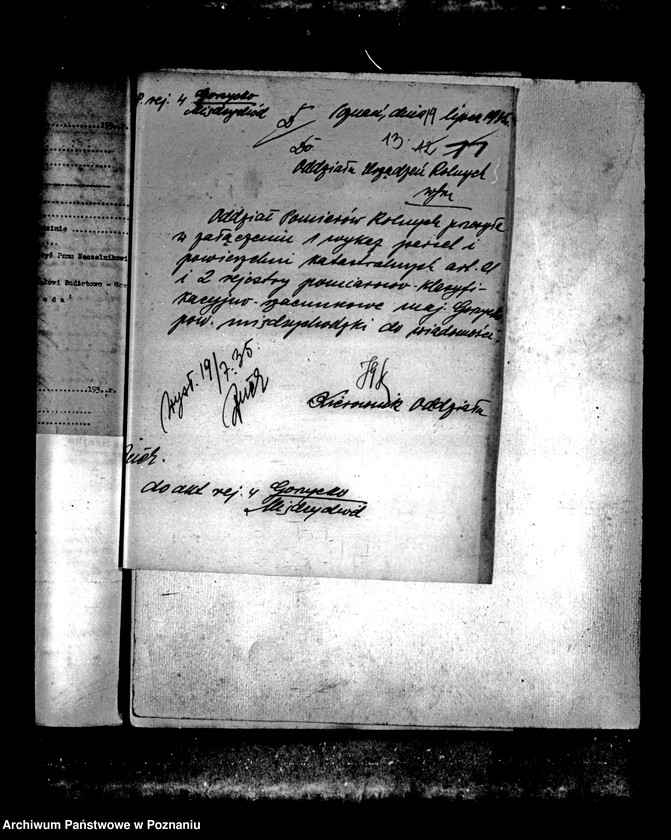 P. rej. 4 Gorzycko
Międzychód
Poznań, dnia 19 lipca 1935.
Do
Oddziału Urządzeń Rolnych
w/m
Oddział Pomiarów Rolnych przesyła
w załączeniu 1 wykaz parcel i
powierzchni katastralnych art.
i 2 rejestry pomiarowo-klasyfi-
kacyjno-szacunkowe maj. Gorzycko
pow. międzychodzki do wiadomości.
wysł. 19/7.35.
Kierownik Oddziału
do akt rej. 4 Gorzycko
Międzychód
193
zynie
yć Panu Naczelnikowi
Budżetowo - Go
e d a"
193...r.
Archiwum Państwowe w Poznaniu